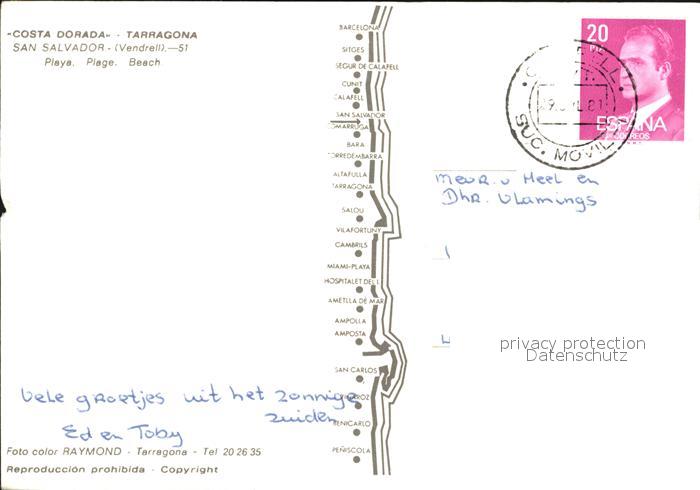 "COSTA DORADA" - TARRAGONA
SAN SALVADOR - (Vendrell).—51
Playa. Plage. Beach
BARCELONA
SITGES
SEGUR DE CALAFELL
CUNIT
CALAFELL
SAN SALVADOR
COMARRUGA
BARA
TORREDEMBARRA
ALTAFULLA
TARRAGONA
SALOU
VILAFORTUNY
CAMBRILS
MIAMI-PLAYA
HOSPITALET DEL I.
AMETLLA DE MAR
AMPOLLA
AMPOSTA
SAN CARLOS
BENICARLO
PEÑISCOLA
20
PTA
ESPAÑA
CORREOS
SUC. MOVIL
Mevr. v Meel en
Dhr. Vlamings
privacy protection
Datenschutz
Vele groetjes uit het zonnige
zuiden
Ed en Toby
Foto color RAYMOND - Tarragona - Tel 20 26 35
Reproducción prohibida - Copyright